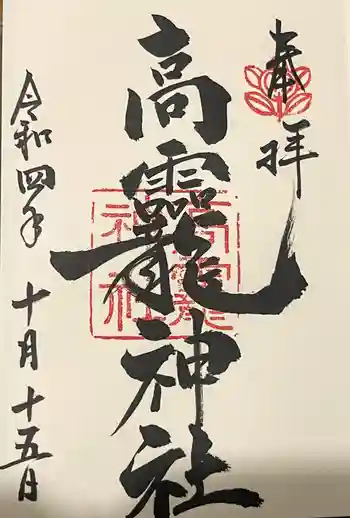 奉拝
高龗神社
高龗神社
令和四年
十月十五日